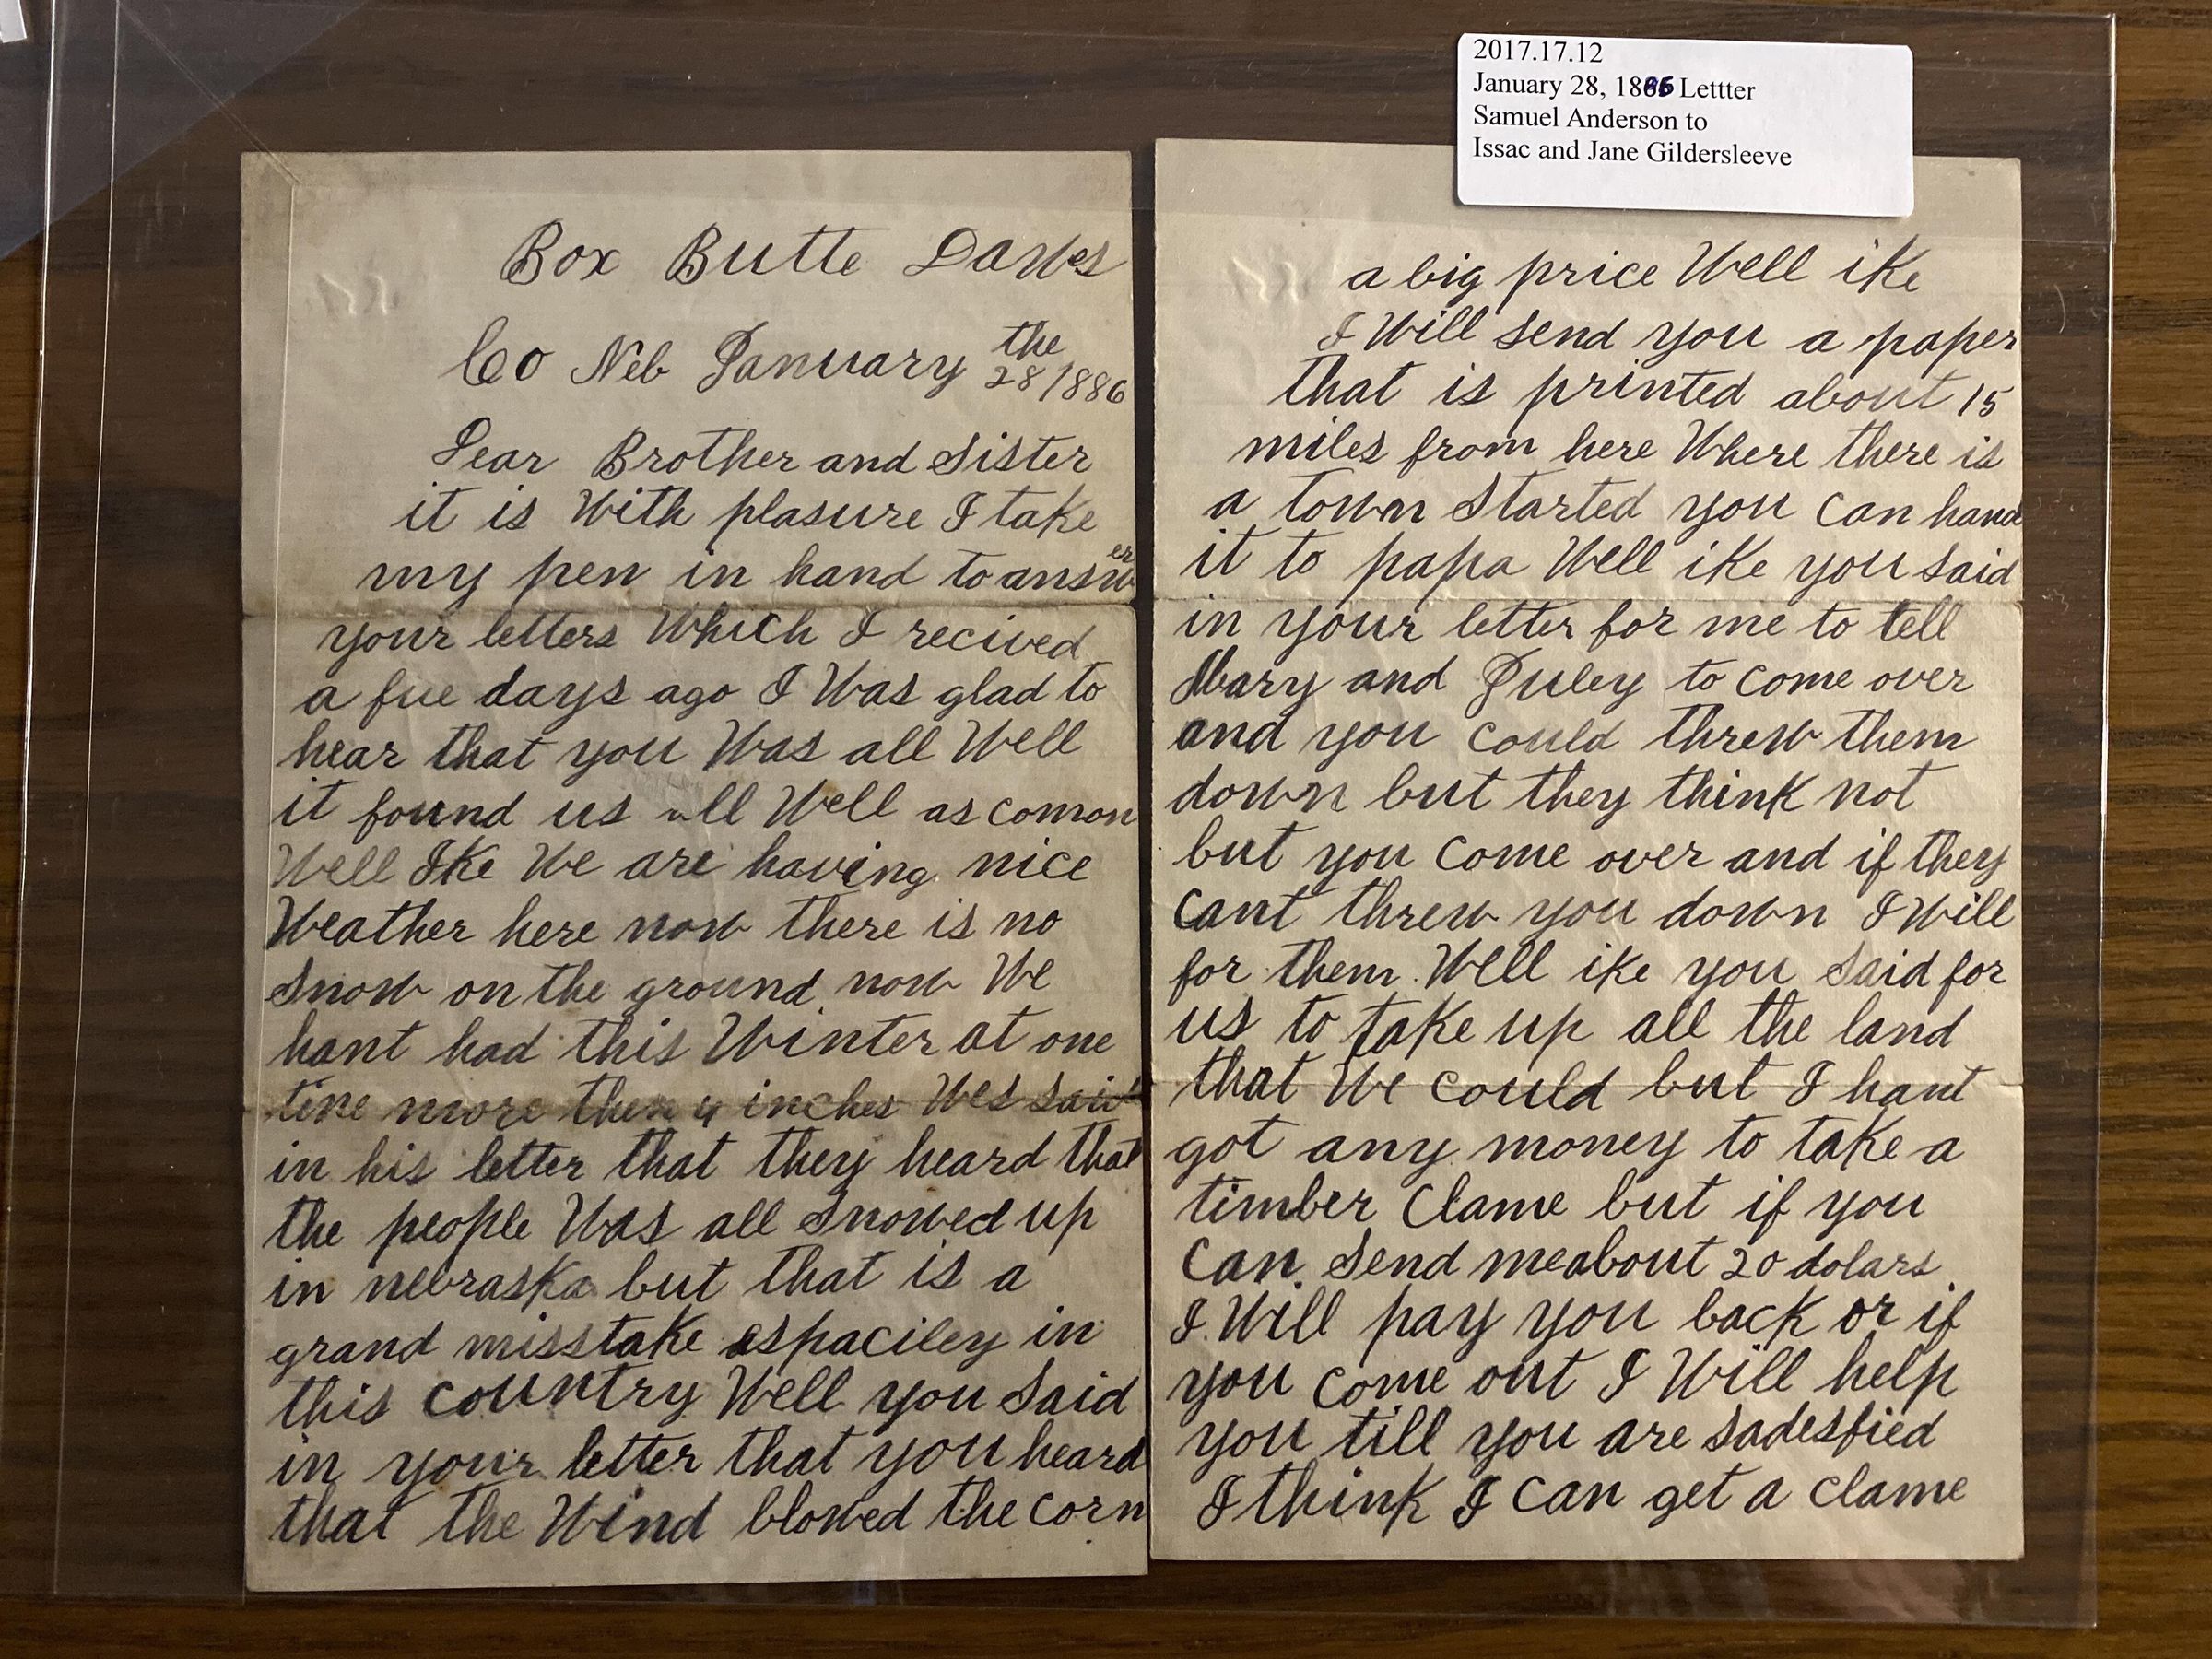 2017.17.12
January 28, 1886 Lettter
Samuel Anderson to
Issac and Jane Gildersleeve
Box Butte Dawes
Co Neb January the 28/1886
Dear Brother and Sister
it is With plasure I take
my pen in hand to answer
your letters Which I recived
a fue days ago I Was glad to
hear that you Was all Well
it found us all Well as comon
Well Ike We are having nice
Weather here now there is no
Snow on the ground now We
hant had this Winter at one
time more then 4 inches Wes said
in his letter that they heard that
the people Was all Snowed up
in nebraska but that is a
grand misstake espaciley in
this country Well you Said
in your letter that you heard
that the Wind blowed the corn
a big price Well ike
I Will Send you a paper
that is printed about 15
miles from here Where there is
a town Started you can hand
it to papa Well ike you Said
in your letter for me to tell
Mary and Juley to come over
and you could threw them
down but they think not
but you come over and if they
cant threw you down I Will
for them Well ike you Said for
us to take up all the land
that We could but I hant
got any money to take a
timber Clame but if you
can Send me about 20 dolars
I Will pay you back or if
you come out I Will help
you till you are sadesfied
I think I can get a clame